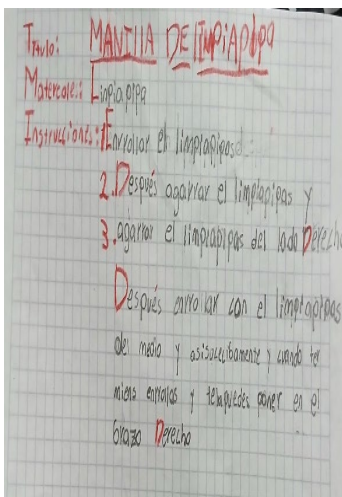 Título: MANILLA DE limpiApipa
Matereales: Linpiapipa
Instrucciones: 1. Enrollar el limpiapipas
2. Después agarrar el limpiapipas y
3. agarrar el limpiapipas del lado Derecho
Después enrrollar con el limpiapipas
del medio y asisucecibamente y cuando ter
miens enrrollas y telapuedes poner en el
brazo Derecho